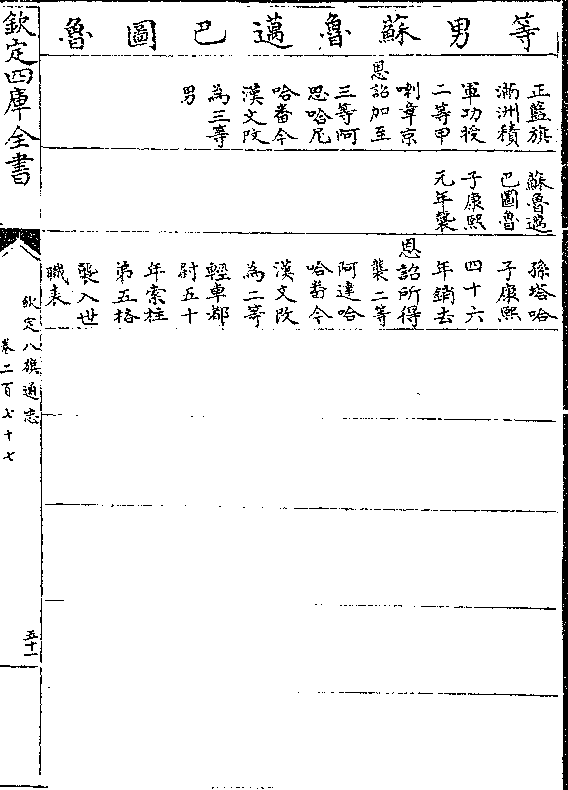 等男蘇魯邁巴圖魯
正藍旗
滿洲積
軍功授
二等甲
喇章京
恩詔加至
三等阿
思哈尼
哈番今
漢文改
為三等
男
蘇魯邁
巴圖魯
子康熙
元年襲
孫塔哈
子康熙
四十六
年銷去
恩詔所得
襲二等
阿達哈
哈番今
漢文改
為二等
輕車都
尉五十
年索柱
第五格
襲入世
職表
欽定四庫全書
欽定八旗通志
卷二百七十七
五十一